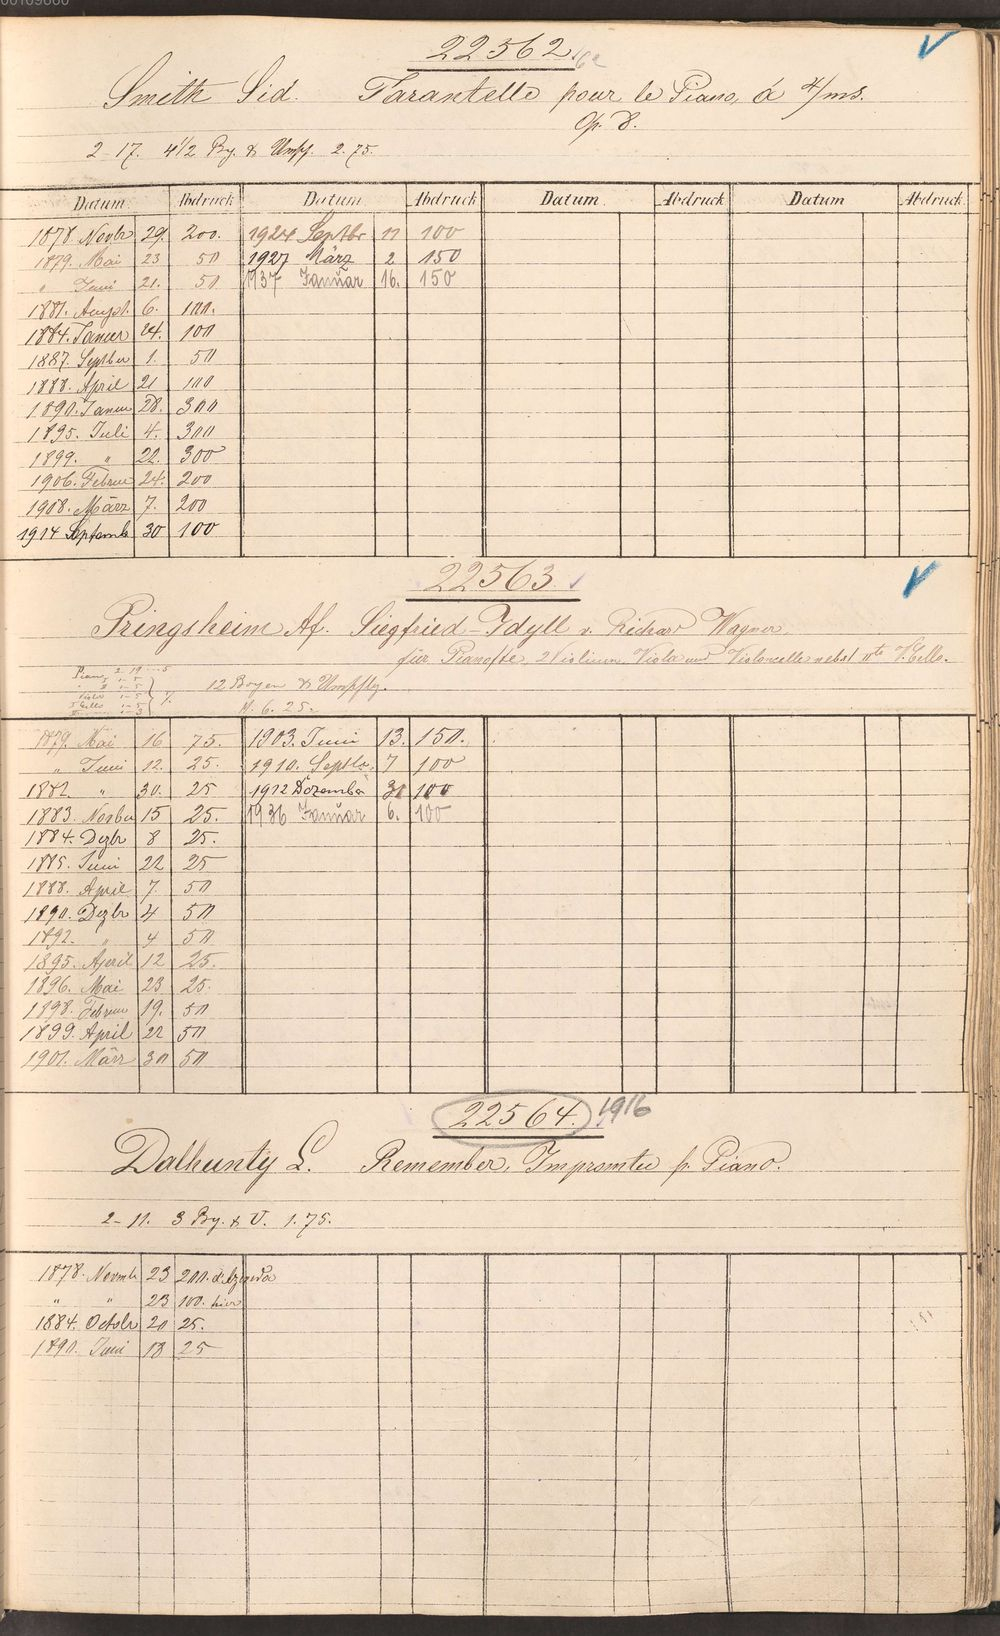 22562.
Smith Sid. Tarantelle pour le Piano, á 4/ms.
Op. 8.
2-17. 4 1/2 Bg. & Umsg. 2.75.
Datum Abdruck Datum Abdruck Datum Abdruck Datum Abdruck
1878. Novbr 29. 200. 1924 Septbr 11 100
1879. Mai 23 50 1927 März 2 150
" Juni 21. 50 1937 Januar 16. 150
1881. August. 6. 100.
1884. Januar 24. 100
1887. Septber 1. 50
1888. April 21 100
1890. Januar 28. 300
1895. Juli 4. 300
1899. " 22. 300
1906. Februar 24. 200
1908. März 7. 200
1914 Septemb 30 100
22563.
Pringsheim Af. Siegfried-Idyll v. Richard Wagner.
für Pianofte, 2 Violinen, Viola und Violoncello nebst IIte V.Cello.
12 Bogen & Umschlg.
M. 6. 25.
1879. Mai 16 75. 1903. Juni 13. 150.
" Juni 12. 25. 1910. Septbr. 7 100
1882. " 30. 25 1912 Dezember 31 100
1883. Novber 15 25. 1936 Januar 6. 100
1884. Dezbr 8 25.
1885. Juni 22 25
1888. April 7. 50
1890. Dezbr 4 50
1892. " 4 50
1895. April 12 25.
1896. Mai 23 25.
1898. Februar 19. 50
1899. April 22 50
1901. März 30 50
22564. 1916
Dalhunty L. Remember, Impromtu p. Piano.
2-11. 3 Bg. & U. 1.75.
1878. Novmb 23 200.
" " 23 100. hier
1884. Octobr 20 25.
1890. Juni 13 25